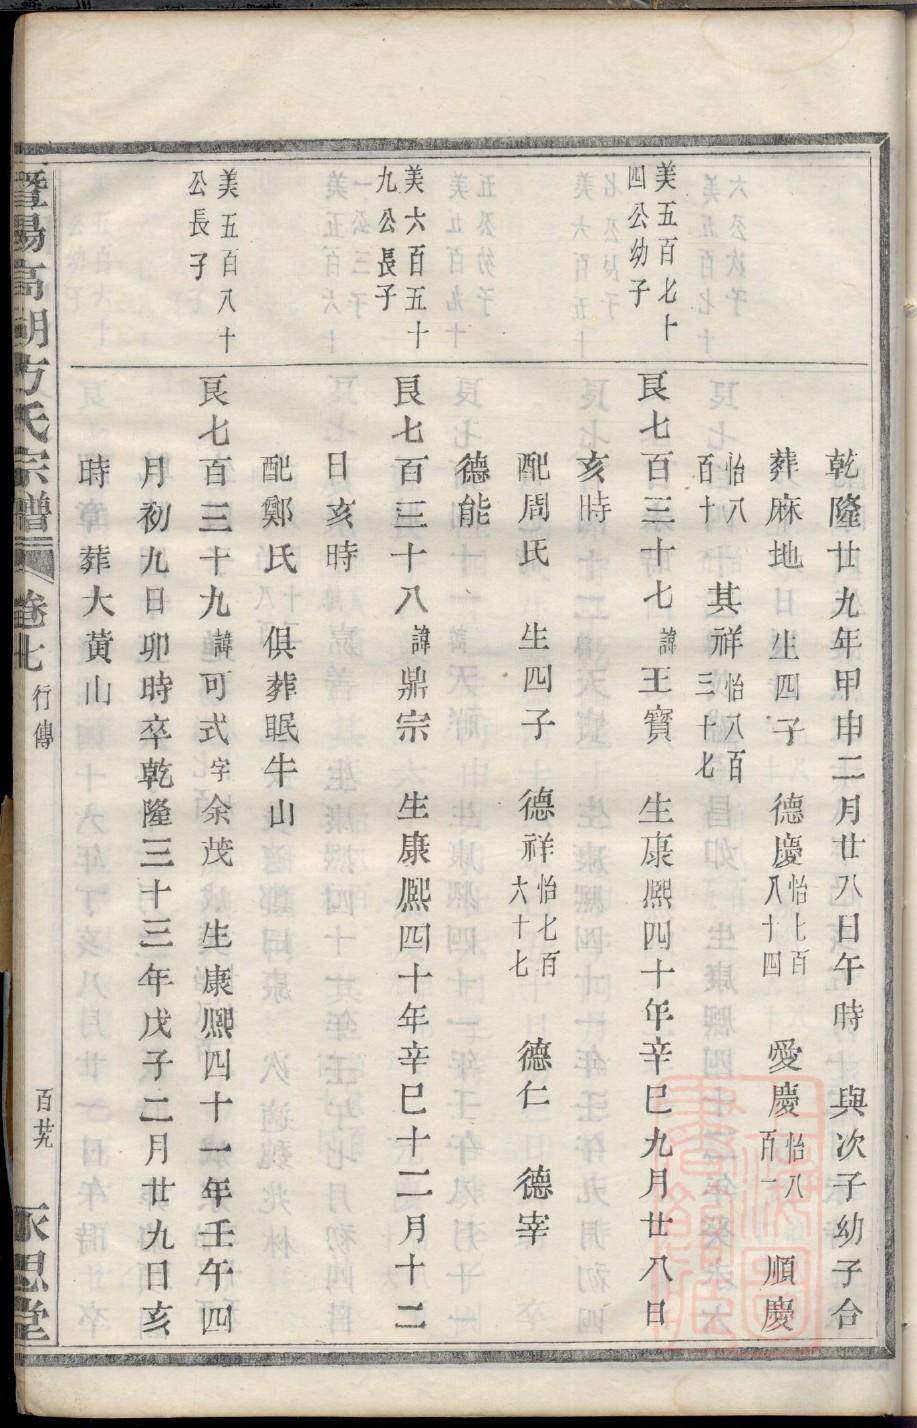 乾隆廿九年甲申二月廿八日午時 與次子幼子合
葬麻地 生四子 德慶怡七百八十四 愛慶怡八百一 順慶
怡八百十 其祥怡八百三十七
美五百七十四公幼子
艮七百三十七諱王寳 生康熙四十年辛巳九月廿八日
亥時
配周氏 生四子 德祥怡七百六十七 德仁 德宰
德能
美六百五十九公長子
艮七百三十八諱鼎宗 生康熙四十年辛巳十二月十二
日亥時
配鄭氏 俱葬眠牛山
美五百八十公長子
艮七百三十九諱可式字余茂 生康熙四十一年壬午四
月初九日卯時卒乾隆三十三年戊子二月廿九日亥
時葬大黃山
暨陽高湖方氏宗譜 卷七 行傳 百廿九 永思堂